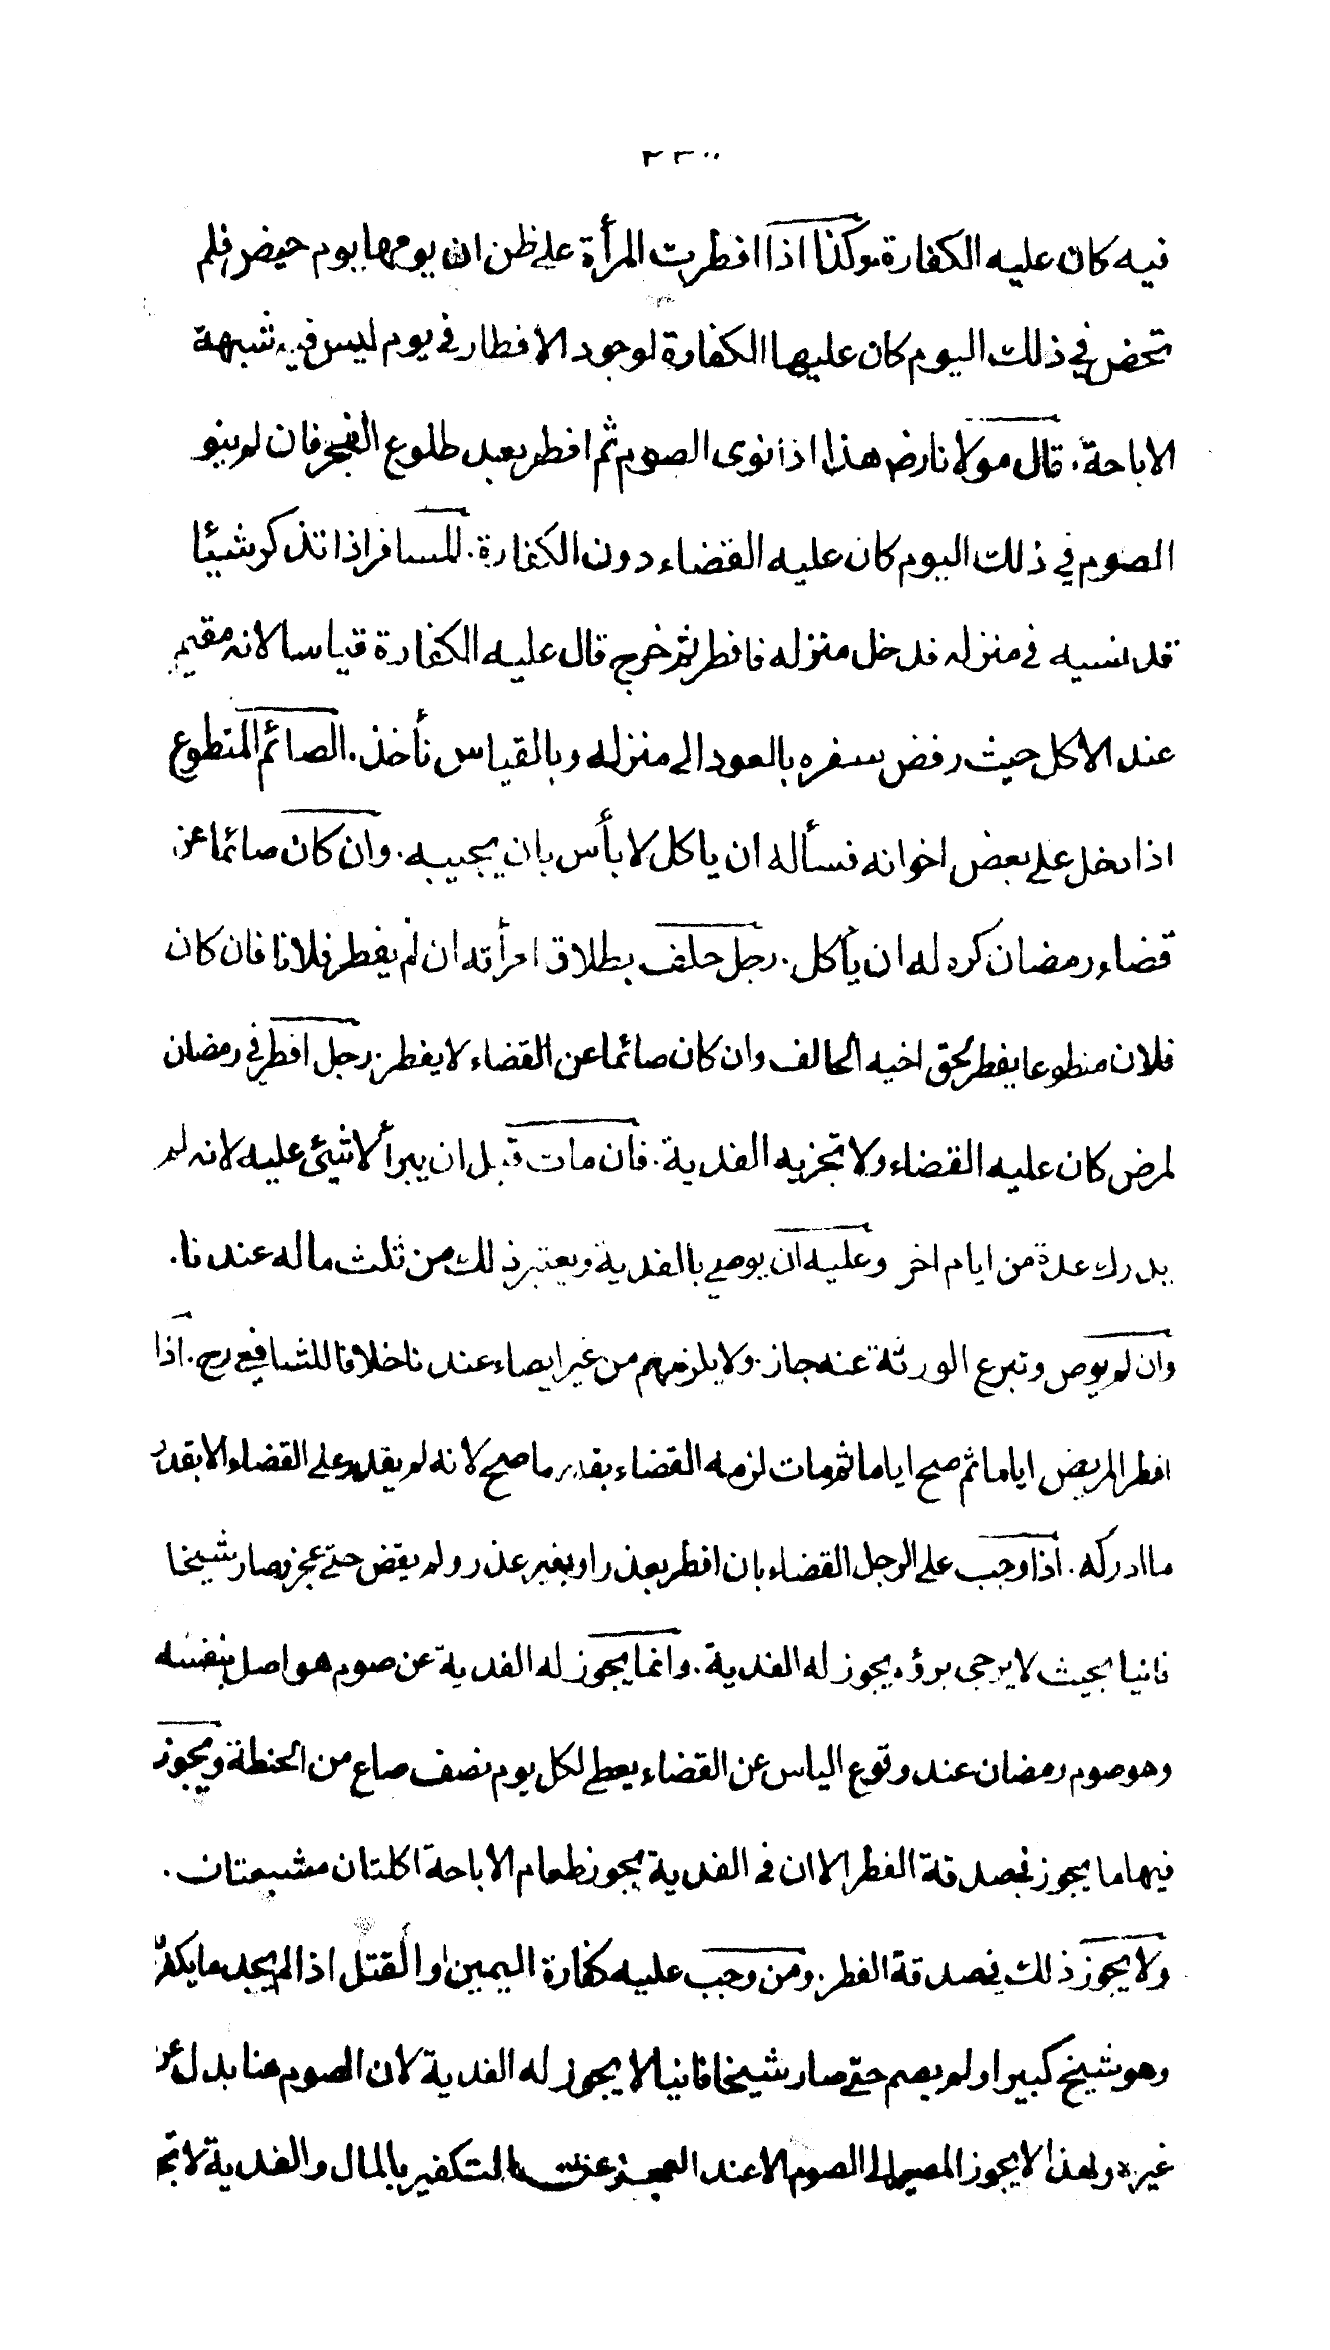 فيه كان عليه الكفارة وكذا اذا افطرت المرأة على ظن ان يومها يوم حيض فلم
تحض في ذلك اليوم كان عليها الكفارة لوجود الافطار في يوم ليس فيه شبهة
الاباحة. قال مولانا رض هذا اذا نوى الصوم ثم افطر بعد طلوع الفجر فان لم ينو
الصوم في ذلك اليوم كان عليه القضاء دون الكفارة. المسافر اذا تذكر شيئا
قد نسيه في منزله فدخل منزله فافطر ثم خرج قال عليه الكفارة قياسا لانه مقيم
عند الاكل حيث رفض سفره بالعود الى منزله وبالقياس نأخذ. الصائم المتطوع
اذا دخل على بعض اخوانه فسأله ان ياكل لا بأس بان يجيبه. وان كان صائما عن
قضاء رمضان كره له ان يأكل. رجل حلف بطلاق امرأته ان لم يفطر فلانا فان كان
فلان متطوعا يفطر لحق اخيه الحالف وان كان صائما عن القضاء لا يفطر. رجل افطر في رمضان
لمرض كان عليه القضاء ولا تجزيه الفدية. فان مات قبل ان يبرأ لا شيئ عليه لانه لم
يدرك عدة من ايام اخر وعليه ان يوصي بالفدية ويعتبر ذلك من ثلث ماله عندنا.
وان لم يوص وتبرع الورثة عنه جاز. ولا يلزمهم من غير ايصاء عندنا خلافا للشافعي رح. اذا
افطر المريض اياما ثم صح اياما ثم مات لزمه القضاء بقدر ما صح لانه لم يقدر على القضاء الا بقدر
ما ادركه. اذا وجب على الرجل القضاء بان افطر بعذر او بغير عذر ولم يقض حتى عجز وصار شيخا
فانيا بحيث لا يرجى برؤه يجوز له الفدية. وانما يجوز له الفدية عن صوم هو اصل بنفسه
وهو صوم رمضان عند وقوع الياس عن القضاء يعطى لكل يوم نصف صاع من الحنطة ويجوز
فيها ما يجوز في صدقة الفطر الا ان في الفدية يجوز طعام الاباحة اكلتان مشبعتان.
ولا يجوز ذلك في صدقة الفطر. ومن وجب عليه كفارة اليمين او القتل اذا لم يجد ما يكفر
وهو شيخ كبير او لم يصم حتى صار شيخا فانيا لا يجوز له الفدية لان الصوم هنا بدل عن
غيره ولهذا لا يجوز المصير الى الصوم الا عند العجز عن التكفير بالمال والفدية لا تج